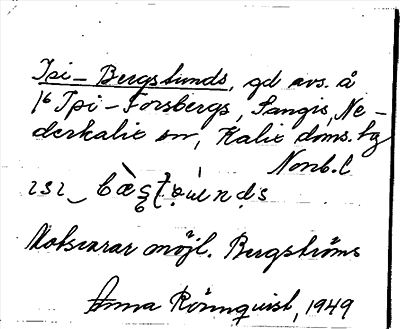 Ipi-Bergslunds, gd avs. å
1⁶ Ipi-Forsbergs, Sangis, Ne-
derkalix sn, Kalix doms. hg
Nonb. l
Motsvarar möjl. Bergströms
Anna Rönnquist, 1949